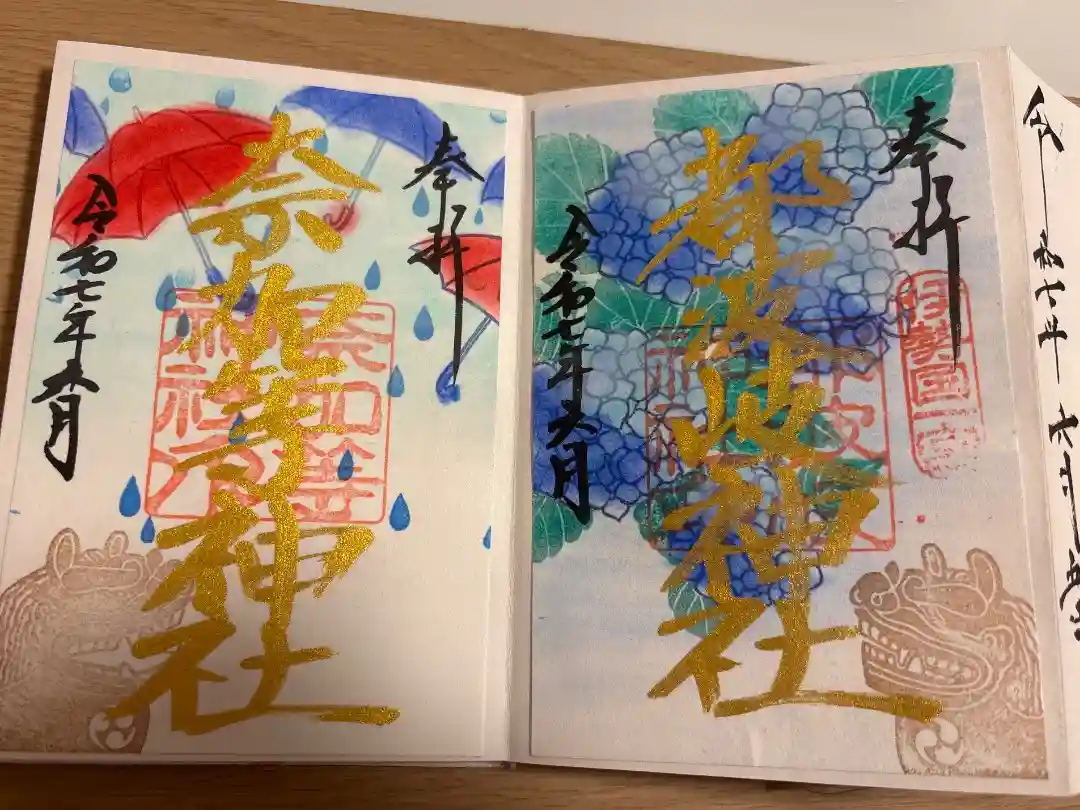 令和七年
奉拝
伊勢国一
都波岐神社
令和七年六月
奉拝
奈加等神社
奈加等
神社
令和七年六月